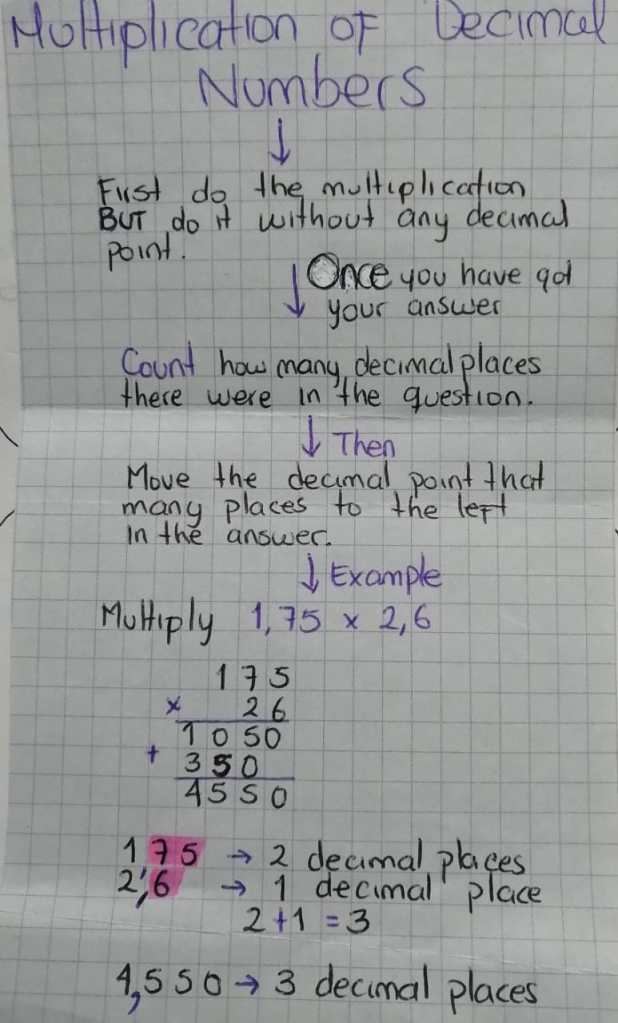 Multiplication of Decimal
Numbers
↓
First do the multiplication
BUT do it without any decimal
point.
↓ Once you have got
your answer
Count how many decimal places
there were in the question.
↓ Then
Move the decimal point that
many places to the left
in the answer.
↓ Example
Multiply 1,75 x 2,6
175
x 26
1050
+ 350
4550
1,75 → 2 decimal places
2,6 → 1 decimal place
2+1 = 3
4,550 → 3 decimal places